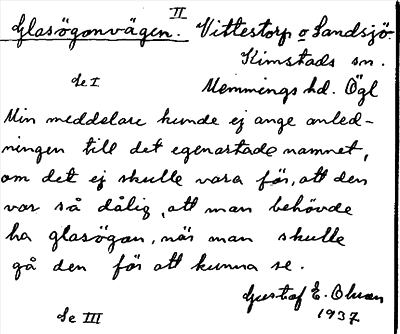 II
Glasögonvägen. Vittestorp o Landsjö.
Kimstads sn.
Se I
Memmings hd. Ögl
Min meddelare kunde ej ange anled-
ningen till det egenartade namnet,
om det ej skulle vara för, att den
var så dålig, att man behövde
ha glasögon, när man skulle
gå den för att kunna se.
Gustaf E. Olsson
1937
Se III